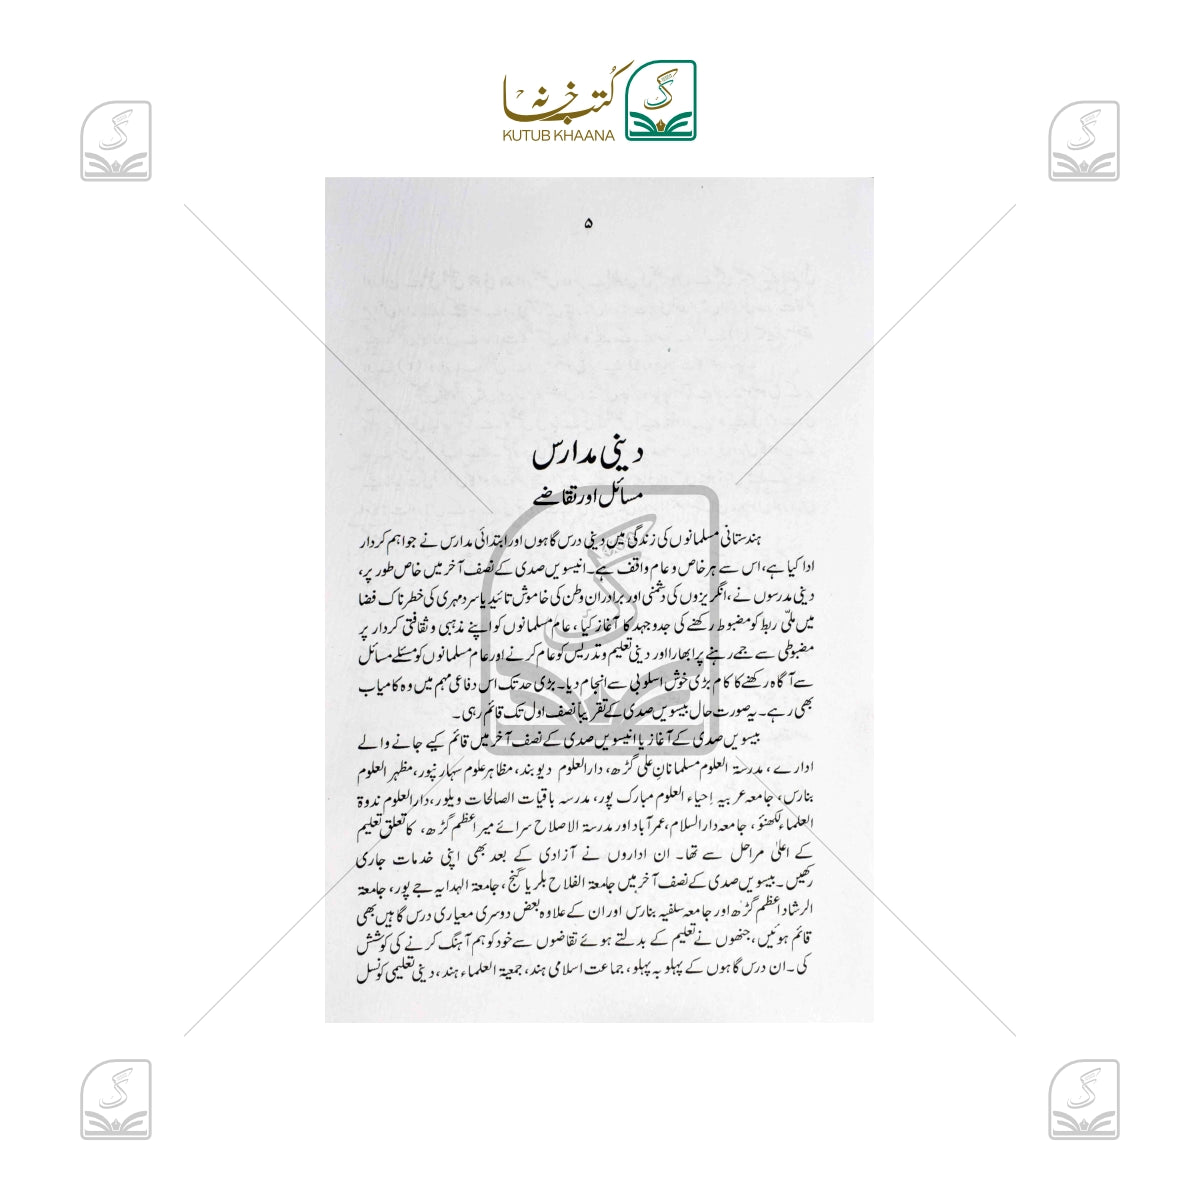 کتب خانہ
KUTUB KHAANA
۵
دینی مدارس
مسائل اور تقاضے
ہندستانی مسلمانوں کی زندگی میں دینی درس گاہوں اور ابتدائی مدارس نے جو اہم کردار
ادا کیا ہے، اس سے ہر خاص و عام واقف ہے۔ انیسویں صدی کے نصف آخر میں خاص طور پر،
دینی مدرسوں نے، انگریزوں کی دشمنی اور برادران وطن کی خاموش تائید یا سرد مہری کی خطرناک فضا
میں ملّی ربط کو مضبوط رکھنے کی جدوجہد کا آغاز کیا، عام مسلمانوں کو اپنے مذہبی و ثقافتی کردار پر
مضبوطی سے جمے رہنے پر ابھارا اور دینی تعلیم و تدریس کو عام کرنے اور عام مسلمانوں کو مسئلے مسائل
سے آگاہ رکھنے کا کام بڑی خوش اسلوبی سے انجام دیا۔ بڑی حد تک اس دفاعی مہم میں وہ کامیاب
بھی رہے۔ یہ صورت حال بیسویں صدی کے تقریباً نصف اول تک قائم رہی۔
بیسویں صدی کے آغاز یا انیسویں صدی کے نصف آخر میں قائم کیے جانے والے
ادارے، مدرسۃ العلوم مسلمانانِ علی گڑھ، دارالعلوم دیوبند، مظاہر علوم سہارنپور، مظہر العلوم
بنارس، جامعہ عربیہ احیاء العلوم مبارک پور، مدرسہ باقیات الصالحات ویلور، دارالعلوم ندوۃ
العلماء لکھنؤ، جامعہ دارالسلام، عمرآباد اور مدرسۃ الاصلاح سرائے میر اعظم گڑھ، کا تعلق تعلیم
کے اعلیٰ مراحل سے تھا۔ ان اداروں نے آزادی کے بعد بھی اپنی خدمات جاری
رکھیں۔ بیسویں صدی کے نصف آخر میں جامعۃ الفلاح بلریا گنج، جامعۃ الہدایہ جے پور، جامعۃ
الرشاد اعظم گڑھ اور جامعہ سلفیہ بنارس اور ان کے علاوہ بعض دوسری معیاری درس گاہیں بھی
قائم ہوئیں، جنھوں نے تعلیم کے بدلتے ہوئے تقاضوں سے خود کو ہم آہنگ کرنے کی کوشش
کی۔ ان درس گاہوں کے پہلو بہ پہلو، جماعت اسلامی ہند، جمعیۃ العلماء ہند، دینی تعلیمی کونسل